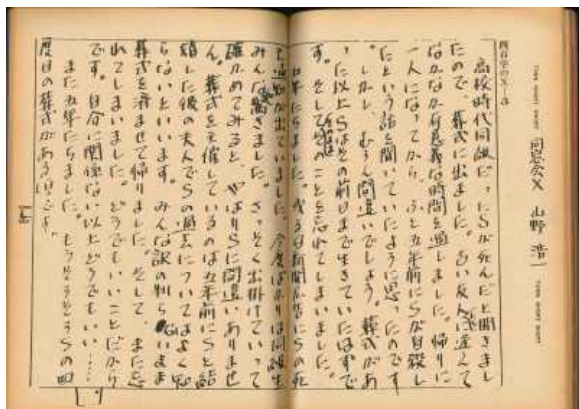 四百字のX—3
同窓会X
山野浩一
高校時代同級だったSが死んだと聞きまし
たので、葬式に出ました。古い友人に逢えて
なかなか有意義な時間を過しました。帰りに
一人になってから、ふと五年前にSが自殺し
たという話を聞いていたように思ったのです
。しかし、むろん間違いでしょう。葬式があ
った以上Sはその前日まで生きていたはずで
す。そしてそのことを忘れてしまいました。
年たちました。或る日新聞にSの死
亡通知が出ていました。今度ばかりは同級生
みんな驚きました。さっそく出掛けていって
確かめてみると、やはりSに間違いありませ
ん。葬式を主催しているのは五年前にSと結
婚した後の夫人でSの過去についてはよく知
らないといいます。みんな訳の判らないまま
葬式を済ませて帰りました。そして、また忘
れてしまいました。どうでもいいことだから
です。自分に関係ない以上どうでもいい……
また五年たちました。もうそろそろSの四
度目の葬式がある頃です。